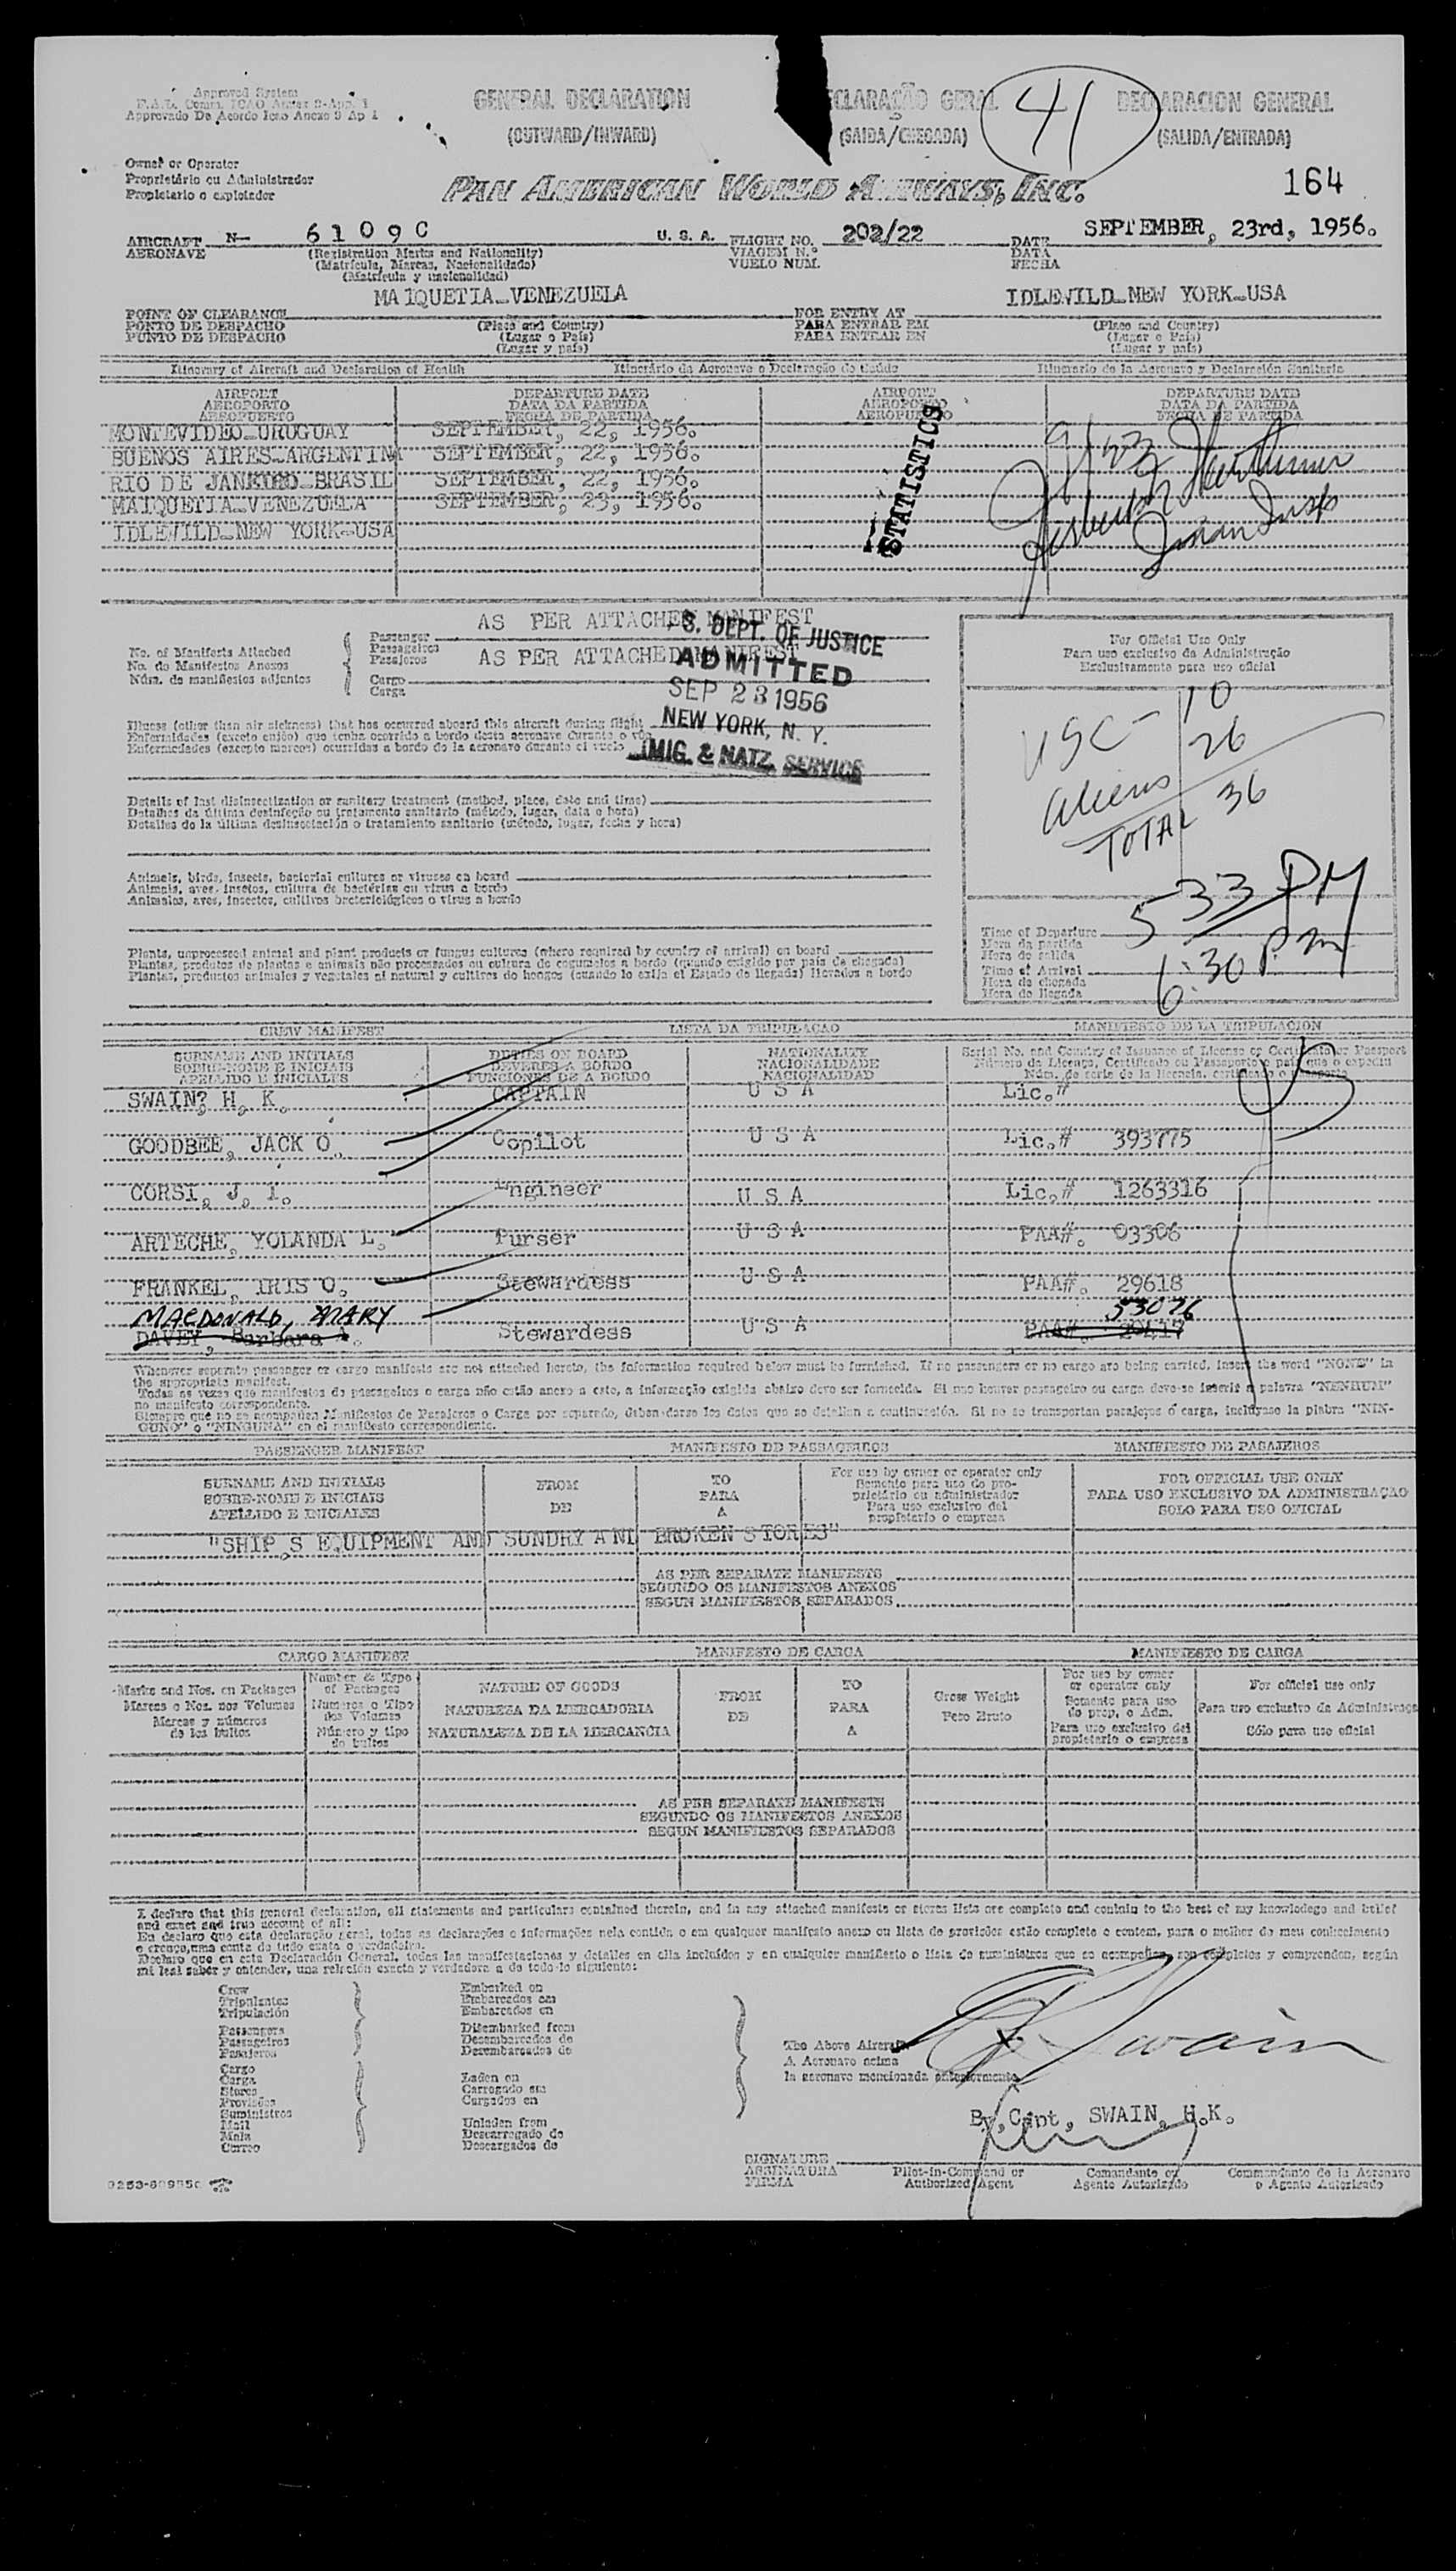 Approved System
F.A.L. Comm. ICAO Annex 9-App. 1
Approvado De Acordo Icao Anexo 9 Ap 1
GENERAL DECLARATION
(OUTWARD/INWARD)
CLARAÇÃO GERAL
(SAIDA/CHEGADA)
41
DECLARACION GENERAL
(SALIDA/ENTRADA)
Owner or Operator
Proprietário ou Administrador
Propietario o explotador
PAN AMERICAN WORLD AIRWAYS, INC.
164
AIRCRAFT N- 6109C U. S. A. FLIGHT NO. 202/22 DATE SEPTEMBER, 23rd, 1956.
AERONAVE (Registration Marks and Nationality) VIAGEM N.° DATA
(Matricula, Marcas, Nacionalidade) VUELO NUM. FECHA
(Matrícula y nacionalidad)
MAIQUETIA-VENEZUELA IDLEWILD-NEW YORK-USA
POINT OF CLEARANCE (Place and Country) FOR ENTRY AT (Place and Country)
PONTO DE DESPACHO (Lugar e País) PARA ENTRAR EM (Lugar e País)
PUNTO DE DESPACHO (Lugar y país) PARA ENTRAR EN (Lugar y país)
Itinerary of Aircraft and Declaration of Health Itinerário da Aeronave e Declaração de Saúde Itinerario de la Aeronave y Declaración Sanitaria
AIRPORT DEPARTURE DATE AIRPORT DEPARTURE DATE
AEROPORTO DATA DA PARTIDA AEROPORTO DATA DA PARTIDA
AEROPUERTO FECHA DE PARTIDA AEROPUERTO FECHA DE PARTIDA
MONTEVIDEO-URUGUAY SEPTEMBER, 22, 1956.
BUENOS AIRES-ARGENTINA SEPTEMBER, 22, 1956.
RIO DE JANEIRO-BRASIL SEPTEMBER, 22, 1956.
MAIQUETIA-VENEZUELA SEPTEMBER, 23, 1956.
IDLEWILD-NEW YORK-USA
STATISTICS
9/23
AS PER ATTACHED MANIFEST
No. of Manifests Attached
No. de Manifestos Anexos
Núm. de manifiestos adjuntos
Passenger
Passageiros
Pasajeros
AS PER ATTACHED MANIFEST
Cargo
Carga
S. DEPT. OF JUSTICE
ADMITTED
SEP 23 1956
NEW YORK, N. Y.
IMIG. & NATZ. SERVICE
For Official Use Only
Para uso exclusivo da Administração
Exclusivamente para uso oficial
USC- 10
Aliens 26
TOTAL 36
Illness (other than air sickness) that has occurred aboard this aircraft during flight
Enfermidades (exceto enjôo) que tenha ocorrido a bordo desta aeronave durante o vôo
Enfermedades (excepto mareos) ocurridas a bordo de la aeronave durante el vuelo
Details of last disinsectization or sanitary treatment (method, place, date and time)
Detalhes da última desinfeção ou tratamento sanitário (método, lugar, data e hora)
Detalles de la última desinsectación o tratamiento sanitario (método, lugar, fecha y hora)
Animals, birds, insects, bacterial cultures or viruses on board
Animais, aves, insetos, cultura de bactérias ou virus a bordo
Animales, aves, insectos, cultivos bacteriológicos o virus a bordo
Plants, unprocessed animal and plant products or fungus cultures (where required by country of arrival) on board
Plantas, produtos de plantas e animais não processados ou cultura de cogumelos a bordo (quando exigido por país da chegada)
Plantas, productos animales y vegetales al natural y cultivos de hongos (cuando lo exija el Estado de llegada) llevados a bordo
Time of Departure 5 33 PM
Hora da partida
Hora de salida
Time of Arrival 6:30 P.m
Hora da chegada
Hora de llegada
CREW MANIFEST LISTA DA TRIPULAÇÃO MANIFIESTO DE LA TRIPULACION
SURNAME AND INITIALS DUTIES ON BOARD NATIONALITY Serial No. and Country of Issuance of License or Certificate or Passport
SOBRE-NOME E INICIAIS DEVERES A BORDO NACIONALIDADE Número da Licença, Certificado ou Passaporte e país que o expediu
APELLIDO E INICIALES FUNCIONES DE A BORDO NACIONALIDAD Núm. de serie de la licencia, certificado o pasaporte
SWAIN? H, K. CAPTAIN U S A Lic.#
GOODBEE, JACK O. Copilot U S A Lic.# 393775
CORSI, J, I. Engineer U S A Lic.# 1263316
ARTECHE, YOLANDA L. Purser U S A PAA#. 03306
FRANKEL, IRIS O. Stewardess U S A PAA#. 29618
MACDONALD, MARY 53026
DAVEY, Barbara A. Stewardess U S A PAA#.
Whenever separate passenger or cargo manifests are not attached hereto, the information required below must be furnished. If no passengers or no cargo are being carried, insert the word "NONE" in
the appropriate manifest.
Todas as vezes que manifestos de passageiros o carga não estão anexo a este, a informação exigida abaixo deve ser fornecida. Si nao houver passageiro ou carga deve-se inserir a palavra "NENHUM"
no manifesto correspondente.
Siempre que no se acompañen Manifiestos de Pasajeros o Carga por separado, deben darse los datos que se detallan a continuación. Si no se transportan pasajeros ó carga, incluyase la plabra "NIN-
GUNO" o "NINGUNA" en el manifiesto correspondiente.
PASSENGER MANIFEST MANIFESTO DE PASSAGEIROS MANIFIESTO DE PASAJEROS
SURNAME AND INITIALS FROM TO For use by owner or operator only FOR OFFICIAL USE ONLY
SOBRE-NOME E INICIAIS DE PARA Somente para uso do pro- PARA USO EXCLUSIVO DA ADMINISTRAÇAO
APELLIDO E INICIALES A prietário ou administrador SOLO PARA USO OFICIAL
Para uso exclusivo del
propietario o empresa
"SHIP,S EQUIPMENT AND SUNDRY AND BROKEN STORES"
AS PER SEPARATE MANIFESTS
SEGUNDO OS MANIFIESTOS ANEXOS
SEGUN MANIFIESTOS SEPARADOS
CARGO MANIFEST MANIFESTO DE CARGA MANIFIESTO DE CARGA
Marks and Nos. on Packages Number & Type of Packages NATURE OF GOODS FROM TO Gross Weight For use by owner or operator only For official use only
Marcas e Nos. nos Volumes Numeros e Tipo dos Volumes NATUREZA DA MERCADORIA DE PARA Peso Bruto Somente para uso do prop. o Adm. Para uso exclusivo da Administraça
Marcas y números de los bultos Número y tipo de bultos NATURALEZA DE LA MERCANCIA A Para uso exclusivo del propietario o empresa Sólo para uso oficial
AS PER SEPARATE MANIFESTS
SEGUNDO OS MANIFESTOS ANEXOS
SEGUN MANIFIESTOS SEPARADOS
I declare that this general declaration, all statements and particulars contained therein, and in any attached manifests or stores lists are complete and contain to the best of my knowledege and belief
and exact and true account of all:
Eu declaro que esta declaração geral, todas as declarações e informações nela contida o em qualquer manifesto anexo ou lista de provisões estão completo e contem, para o melhor do meu conhecimento
e crença, uma conta de tudo exata e verdadeira.
Declaro que en esta Declaración General, todas las manifestaciones y detalles en ella incluidos y en cualquier manifiesto o lista de suministros que se acompañan, son completos y comprenden, según
mi leal saber y entender, una relación exacta y verdadera a de todo lo siguiente:
Crew Embarked on
Tripulantes Embarcados em
Tripulación Embarcados en
Passengers Disembarked from
Passageiros Desembarcados de
Pasajeros Desembarcados de
Cargo
Carga Laden on
Stores Carregado em
Provisões Cargados en
Suministros
Mail Unladen from
Mala Descarregado de
Correo Descargados de
The Above Aircraft
A Aeronave acima
la aeronave mencionada anteriormente
H K Swain
By, Capt, SWAIN, H.K.
SIGNATURE
ASSINATURA
FIRMA
Pilot-in-Command or Comandante ou Commandante de la Aeronave
Authorized Agent Agente Autorizado o Agente Autorizado